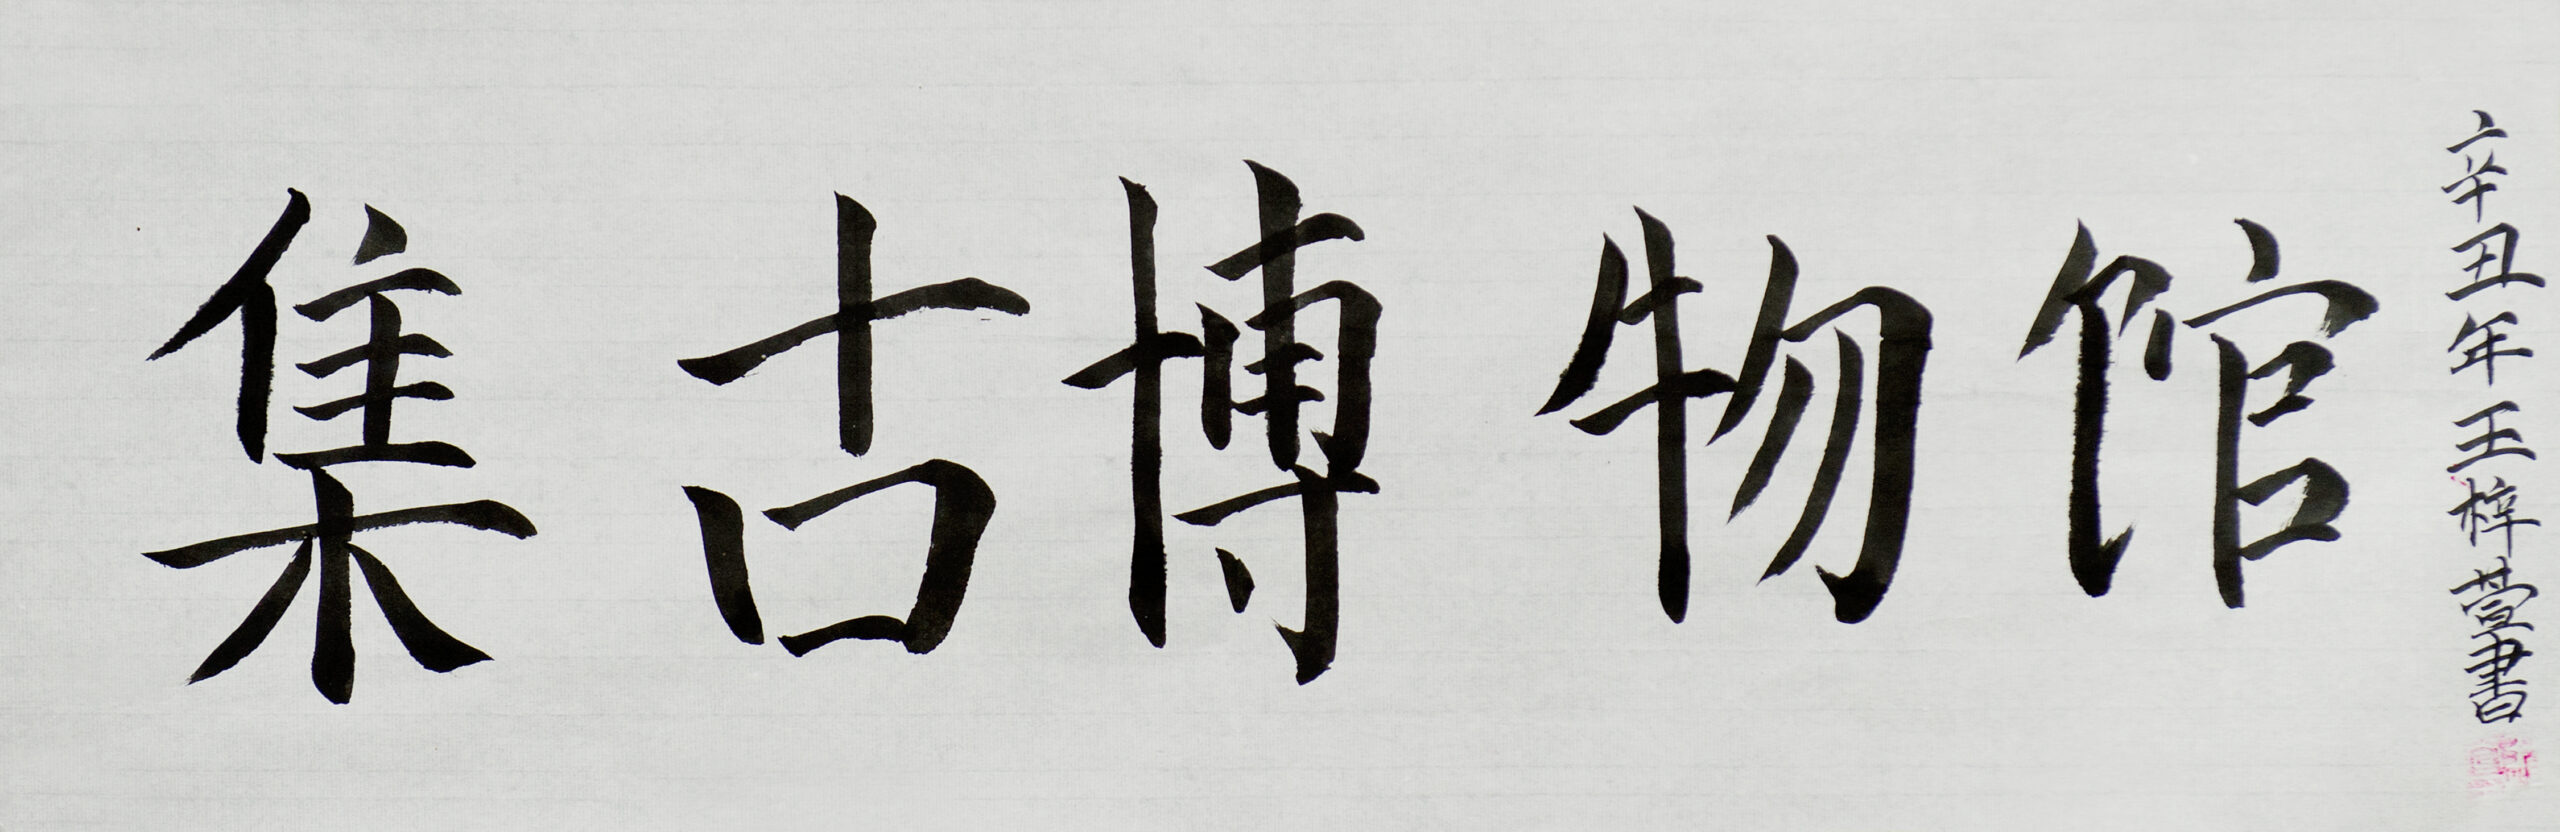 集古博物馆
辛丑年王梓萱書